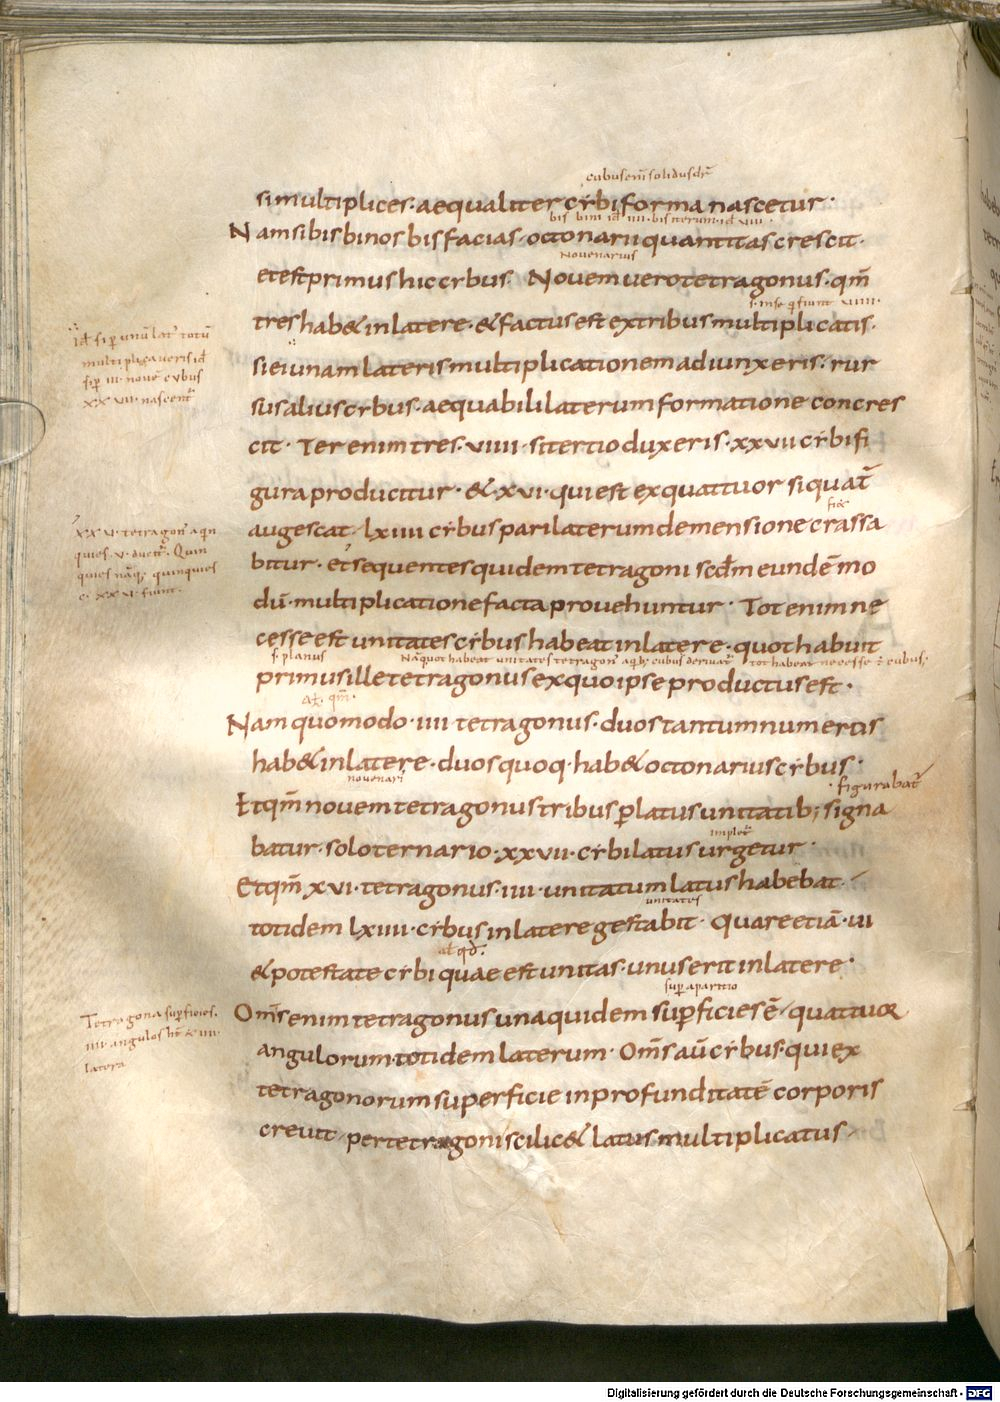 cubus enī solidus dr̄
simultiplices· aequaliter cẏbi forma nascetur·
bis bini id̄ IIII· bis iterum id̄ VIII·
Nam si bis binos bis facias· octonarii quantitas crescit·
et est primus hic cẏbus· Novem vero tetragonus· qm̄
Novenarius
tres hab& in latere· & factus est ex tribus multiplicatis·
s· in se q fiunt VIIII·
si ei unam lateris multiplicationem adiunxeris· rur
sus alius cẏbus· aequabili laterum formatione concres
cit· Ter enim tres· VIIII· si tertio duxeris· XXVII cẏbi fi
gura producitur· & XVI· qui est ex quattuor si quat̄
augescat· LXIIII cẏbus pari laterum demensione crassa
bitur· et sequentes quidem tetragoni scd̄m eundē mo
dū· multiplicatione facta provehuntur· Tot enim ne
cesse est unitates cẏbus habeat in latere· quot habuit
s· planus
Nā quot habeat unitates tetragon̄ a q cubus derivat̄ tot habeat necesse ē cubus·
primus ille tetragonus ex quo ipse productus est·
qm̄·
Nam quomodo· IIII tetragonus· duos tantum numeros
hab& in latere· duos quoq· hab& octonarius cẏbus·
novenari
figurabat̄
Et qm̄ novem tetragonus tribus p̄ latus unitatib; signa
batur· solo ternario· XXVII· cẏbi latus urgetur·
implet̄
Et qm̄ XVI· tetragonus· IIII· unitatum latus habebat·
totidem LXIIII· cẏbus in latere gestabit· Quare etiā· vi
unitates
& potestate cẏbi quae est unitas· unus erit in latere·
superaparitio
Om̄s enim tetragonus una quidem sup̄ficies ē· quattuor
angulorum· totidem laterum· Om̄s aū cẏbus· qui ex
tetragonorum superficie in profunditatē corporis
crevit· per tetragoni scilic& latus multiplicatus·
id̄ si p̄ unū lat̄ totū
multiplicaveris id̄
sup̄ III· novē cubus
XXVII· nascent̄
XXV· tetragon̄ a q̄n
quies· V· duct̄· Quin
quies nāq; quinquies
XXV· fiunt·
Tetragona sup̄ficies·
IIII· angulos h̄t & IIII·
latera
Digitalisierung gefördert durch die Deutsche Forschungsgemeinschaft - DFG